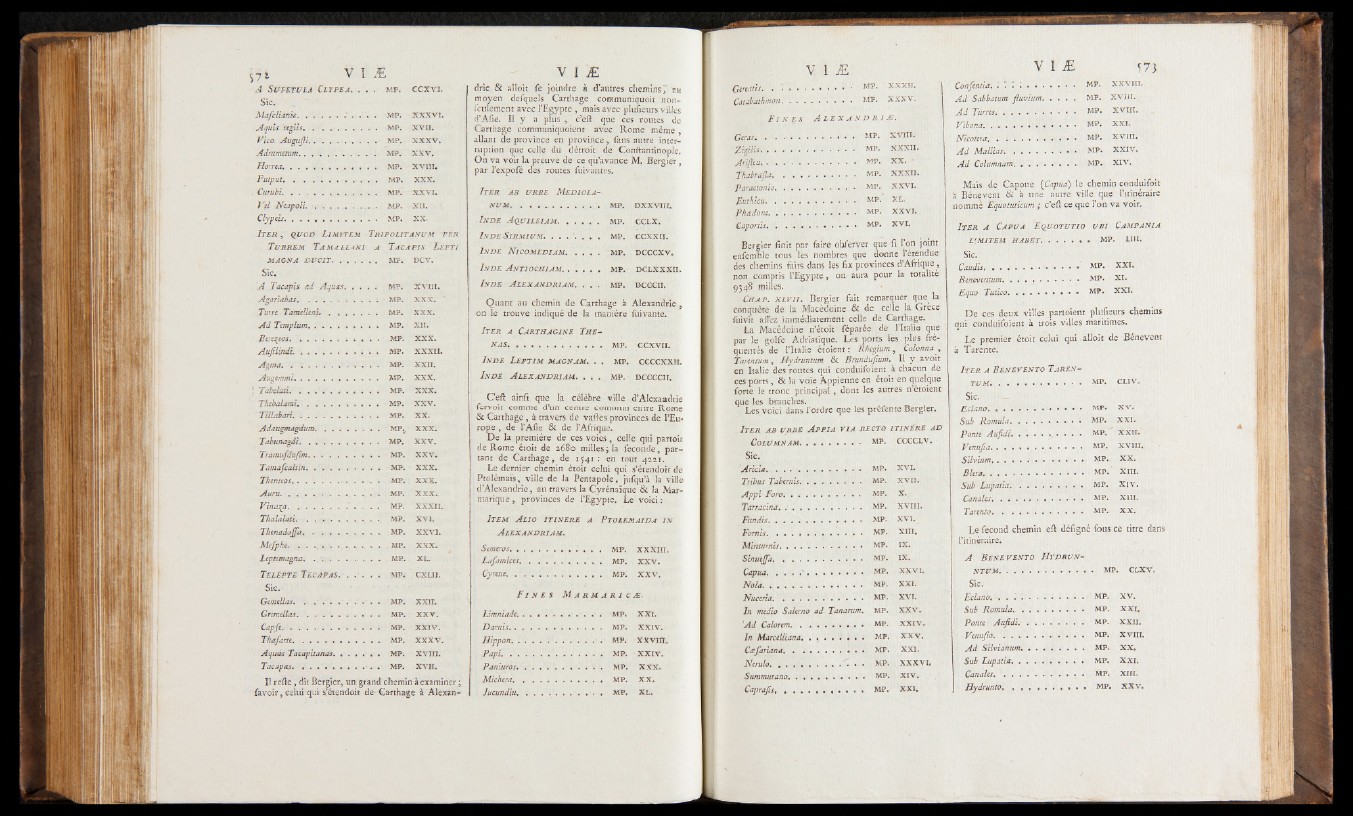 572 VIÆ
A SUFETULA CLYPEA. . . . MP. CCXVI.
Sic.
Masclianis. . . . . . . . . . MP. XXXVI.
Aquis regiis. . . . . . . . . . MP. XVII.
Vico Augusti. . . . . . . . . . MP. XXXV.
Adrumetum. . . . . . . . . . MP. XXV.
Horrea. . . . . . . . . . MP. XVIII.
Putput. . . . . . . . . . MP. XXX.
Curubi. . . . . . . . . . MP. XXVI.
Vel Neapoli. . . . . . . . . . MP. XII.
Clypeis. . . . . . . . . . MP. XX.
ITER, QUOD LIMITEM TRIPOLITANUM PER
TURREM TAMALLANI A TACAPIS LEPTI
MAGNA DUCIT. . . . . . . MP. DCV.
Sic.
A Tacapis ad Aquas. . . . . MP. XVIII.
Agarlabas. . . . . . . . . . MP. XXX.
Turre Tamelleni. . . . . . . . MP. XXX.
Ad Templum. . . . . . . . . . MP. XII.
Bezezeos. . . . . . . . . . MP. XXX.
Ausilindi. . . . . . . . . . MP. XXXII.
Agma. . . . . . . . . . MP. XXII.
Augemmi. . . . . . . . . . MP. XXX.
Tabelati. . . . . . . . . . MP. XXX.
Thebalami. . . . . . . . . . MP. XXV.
Tillabari. . . . . . . . . . MP. XX.
Adaugmagdum. . . . . . . . . MP. XXX.
Tabunagdi. . . . . . . . . . MP. XXV.
Tramusdusim. . . . . . . . . . MP. XXV.
Tamascaltin. . . . . . . . . . MP. XXX.
Thenteos. . . . . . . . . . MP. XXX.
Auru. . . . . . . . . . MP. XXX.
Vinaza. . . . . . . . . . MP. XXXII.
Thalalati. . . . . . . . . . MP. XVI.
Thenadassa. . . . . . . . . . MP. XXVI.
Mesphe. . . . . . . . . . MP. XXX.
Leptimagna. . . . . . . . . . MP. XL.
TELEPTE TECAPAS. . . . . . . MP. CXLII.
Sic.
Gemellas. . . . . . . . . . MP. XXII.
Gremellas. . . . . . . . . . MP. XXV.
Capse. . . . . . . . . . MP. XXIV.
Thasarte. . . . . . . . . . MP. XXXV.
Aquas Tacapitanas. . . . . . . MP. XVIII.
Tacapas. . . . . . . . . . MP. XVII.
Il reste, dit Bergier, un grand chemin à examiner ;
savoir, celui qui s'étendoit de Carthage à Alexan-
VIÆ
drie & alloit se joindre à d'autres chemins, au
moyen desquels Carthage communiquoit non-
seulement avec l'Egypte, mais avec plusieurs villes
d'Asie. Il y a plus, c'est que ces routes de
Carthage communiquoient avec Rome même,
allant de province en province, sans autre inter-
ruption que celle du détroit de Constantinople.
On va voir la preuve de ce qu'avance M. Bergier,
par l'exposé des routes suivantes.
ITER AB URBE MEDIOLA-
NUM. . . . . . . . . . . MP. DXXVIII.
INDE AQUILEIAM. . . . . . MP. CCLX.
INDE SIRMIUM. . . . . . . MP. CCXXII.
INDE NICOMEDIAM. . . . . MP. DCCCXV.
INDE ANTIOCHIAM. . . . . . MP. DCLXXXII.
INDE ALEXANDRIAM. . . . MP. DCCCII.
Quant au chemin de Carthage à Alexandrie,
on le trouve indiqué de la manière suivante.
ITER A CARTHAGINE THE-
NAS. . . . . . . . . . . MP. CCXVII.
INDE LEPTIM MAGNAM. . . MP. CCCCXXII.
INDE ALEXANDRIAM. . . . MP. DCCCCII.
C'est ainsi que la célèbre ville d'Alexandrie
servoit comme d'un centre commun entre Rome
& Carthage, à travers de vastes provinces de l'Eu-
rope, de l'Asie & de l'Afrique.
De la première de ces voies, celle qui partoit
de Rome étoit de 2680 milles ; la seconde, par-
tant de Carthage, de 1541 : en tout 4221.
Le dernier chemin étoit celui qui s'étendoit de
Ptolémaïs, ville de la Pentapole, jusqu'à la ville
d'Alexandrie, au travers la Cyrénaïque & la Mar-
marique, provinces de l'Egypte. Le voici :
ITEM ALIO ITINERE A PTOLEMAIDA IN
ALEXANDRIAM.
Semeros. . . . . . . . . . MP. XXXIII.
Lasamices. . . . . . . . . . MP. XXV.
Cyrene. . . . . . . . . . MP. XXV.
FINES MARMARICÆ.
Limniade. . . . . . . . . . MP. XXI.
Darnis. . . . . . . . . . MP. XXIV.
Hippon. . . . . . . . . . MP. XXVIII.
Papi. . . . . . . . . . MP. XXIV.
Paniuros. . . . . . . . . . MP. XXX.
Michera. . . . . . . . . . MP. XX.
Jucundiu. . . . . . . . . . MP. XL.
VIÆ
Gereatis. . . . . . . . . . MP. XXXII.
Catabathmon. . . . . . . . . . MP. XXXV.
FINES ALEXANDRIÆ.
Geras. . . . . . . . . . MP. XVIII.
Zigilis. . . . . . . . . . MP. XXXII.
Aristeu. . . . . . . . . . MP. XX.
Thabrasta. . . . . . . . . . MP. XXXII.
Paraetonio. . . . . . . . . . MP. XXVI.
Euthicu. . . . . . . . . . MP. XL.
Phadonu. . . . . . . . . . MP. XXVI.
Caportis. . . . . . . . . . MP. XVI.
Bergier finit par faire observer que si l'on joint
ensemble tous les nombres que donne l'étendue
des chemins faits dans les six provinces d'Afrique,
non compris l'Egypte, on aura pour la totalité
9348 milles.
CHAP. XLVII. Bergier fait remarquer que la
conquête de la Macédoine & de celle la Grèce
suivit assez immédiatement celle de Carthage.
La Macédoine n'étoit séparée de l'Italie que
par le golfe Adriatique. Les ports les plus fré-
quentés de l'Italie étoient : Rhegium, Colonna,
Tarentum, Hydruntum & Brundusium. Il y avoit
en Italie des routes qui conduisoient à chacun de
ces ports, & la voie Appienne en étoit en quelque
sorte le tronc principal, dont les autres n'étoient
que les branches.
Les voici dans l'ordre que les présente Bergier.
ITER AB URBE APPIA VIA RECTO ITINERE AD
COLUMNAM. . . . . . . . MP. CCCCLV.
Sic.
Aricia. . . . . . . . . . MP. XVI.
Tribus Tabernis. . . . . . . . . MP. XVII.
Appi Foro. . . . . . . . . . MP. X.
Tarracina. . . . . . . . . . MP. XVIII.
Fundis. . . . . . . . . . MP. XVI.
Formis. . . . . . . . . . MP. XIII.
Minturnis. . . . . . . . . . MP. IX.
Sinuessa. . . . . . . . . . MP. IX.
Capua. . . . . . . . . . MP. XXVI.
Nola. . . . . . . . . . MP. XXI.
Nuceria. . . . . . . . . . MP. XVI.
In medio Salerno ad Tanarum. MP. XXV.
Ad Calorem. . . . . . . . . . MP. XXIV.
In Marcelliana. . . . . . . . . MP. XXV.
Cæsariana. . . . . . . . . . MP. XXI.
Nerulo. . . . . . . . . . MP. XXXVI.
Summurano. . . . . . . . . . MP. XIV.
Caprasis. . . . . . . . . . MP. XXI.
VIÆ 573
Consentia. . . . . . . . . . MP. XXVIII.
Ad Sabbatum fluvium. . . . . . MP. XVIII.
Ad Turres. . . . . . . . . . MP. XVIII.
Vibona. . . . . . . . . . MP. XXI.
Nicotera. . . . . . . . . . MP. XVIII.
Ad Mallias. . . . . . . . . . MP. XXIV.
Ad Columnam. . . . . . . . . . MP. XIV.
Mais de Capone (Capua) le chemin conduisoit
à Bénevent & à une autre ville que l'itinéraire
nomme Equotuticum ; c'est ce que l'on va voir.
ITER A CAPUA EQUOTUTIO UBI CAMPANIA
LIMITEM HABET. . . . . . . MP. LIII.
Sic.
Caudis. . . . . . . . . . MP. XXI.
Beneventum. . . . . . . . . . MP. XI.
Equo Tutico. . . . . . . . . . MP. XXI.
De ces deux villes partoient plusieurs chemins
qui conduisoient à trois villes maritimes.
Le premier étoit celui qui alloit de Bénevent
à Tarente.
ITER A BENEVENTO TAREN-
TUM. . . . . . . . . . . MP. CLIV.
Sic.
Eclano. . . . . . . . . . MP. XV.
Sub Romula. . . . . . . . . . MP. XXI.
Ponte Aufidi. . . . . . . . . . MP. XXII.
Venusia. . . . . . . . . . MP. XVIII.
Silvium. . . . . . . . . . MP. XX.
Blera. . . . . . . . . . MP. XIII.
Sub Lupatia. . . . . . . . . . MP. XIV.
Canales. . . . . . . . . . MP. XIII.
Tarento. . . . . . . . . . MP. XX.
Le second chemin est désigné sous ce titre dans
l'itinéraire.
A BENEVENTO HYDRUN-
NTUM. . . . . . . . . . . MP. CLXV.
Sic.
Eclano. . . . . . . . . . MP. XV.
Sub Romula. . . . . . . . . . MP. XXI.
Ponte Aufidi. . . . . . . . . . MP. XXII.
Venusio. . . . . . . . . . MP. XVIII.
Ad Silvianum. . . . . . . . . . MP. XX.
Sub Lupatia. . . . . . . . . . MP. XXI.
Canales. . . . . . . . . . MP. XIII.
Hydrunto. . . . . . . . . . MP. XXV.